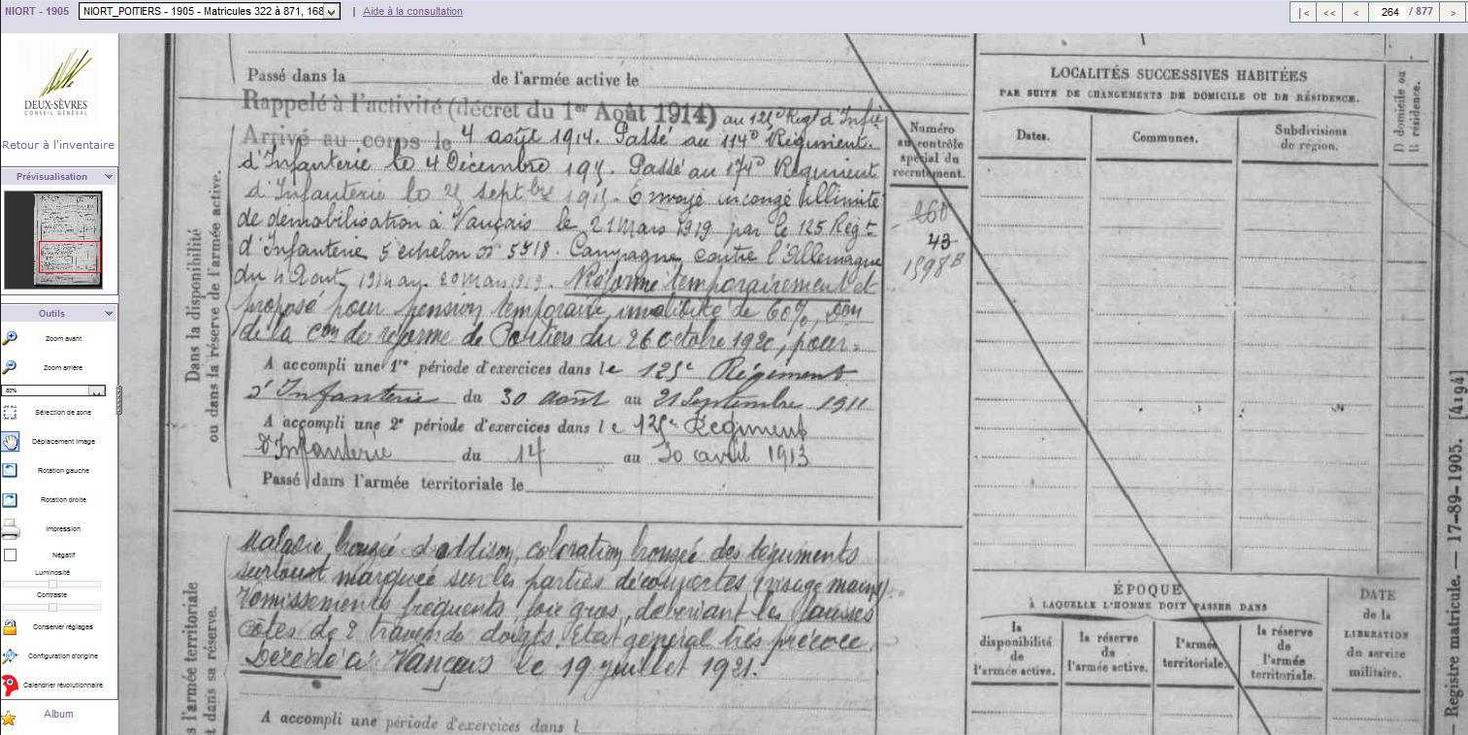 NIORT - 1905
NIORT_POITIERS - 1905 - Matricules 322 à 871, 168
| Aide à la consultation
|< << < 264 / 877 >
DEUX-SÈVRES
CONSEIL GÉNÉRAL
Retour à l'inventaire
Prévisualisation
Outils
Zoom avant
Zoom arrière
Sélection de zone
Déplacement image
Rotation gauche
Rotation droite
Impression
Négatif
Luminosité
Contraste
Conserver réglages
Configuration d'origine
Calendrier révolutionnaire
Album
Dans la disponibilité
ou dans la réserve de l'armée active.
Passé dans la de l'armée active le
Rappelé à l'activité (décret du 1er Août 1914) au 125e Regt d'Infie
Arrivé au corps le 4 août 1914. Passé au 114e Régiment
d'Infanterie le 4 Décembre Passé au 174e Régiment
d'Infanterie le sept bre 1915. Envoyé in congé illimité
de démobilisation à Vançais le 21 Mars 1919 par le 125 Régt
d'Infanterie 5 échelon no 5518. Campagne contre l'Allemagne
du 4 Aout 1914 au 20 Mars 1919. Réformé temporairement et
proposé pour pension temporaire, invalidité de 60%,
de la con de réforme de Poitiers du 26 octobre 1920, pour
A accompli une 1re période d'exercices dans le 125e Régiment
d'Infanterie du 30 août au 21 Septembre 1911
A accompli une 2e période d'exercices dans le 125e Régiment
d'Infanterie du 14 au 30 avril 1913
Passé dans l'armée territoriale le
s l'armée territoriale
t dans sa réserve.
Maladie d'addison, coloration des téguments
surtout marquée sur les parties découvertes (visage mains)
Vomissements fréquents, foie gros, les fausses
côtes de 2 travers de doigts. Etat général très précaire.
Décédé à Vançais le 19 juillet 1921.
A accompli une période d'exercices dans l
Numéro
au contrôle
spécial du
recrutement.
260
43
1598B
LOCALITÉS SUCCESSIVES HABITÉES
PAR SUITE DE CHANGEMENTS DE DOMICILE OU DE RÉSIDENCE.
Dates.
Communes.
Subdivisions
de région.
D domicile ou
R résidence.
ÉPOQUE
À LAQUELLE L'HOMME DOIT PASSER DANS
la
disponibilité
de
l'armée active.
la réserve
de
l'armée active.
l'armée
territoriale.
la réserve
de
l'armée
territoriale.
DATE
de la
LIBÉRATION
du service
militaire.
Registre matricule. — 17-89-1905. [4194]